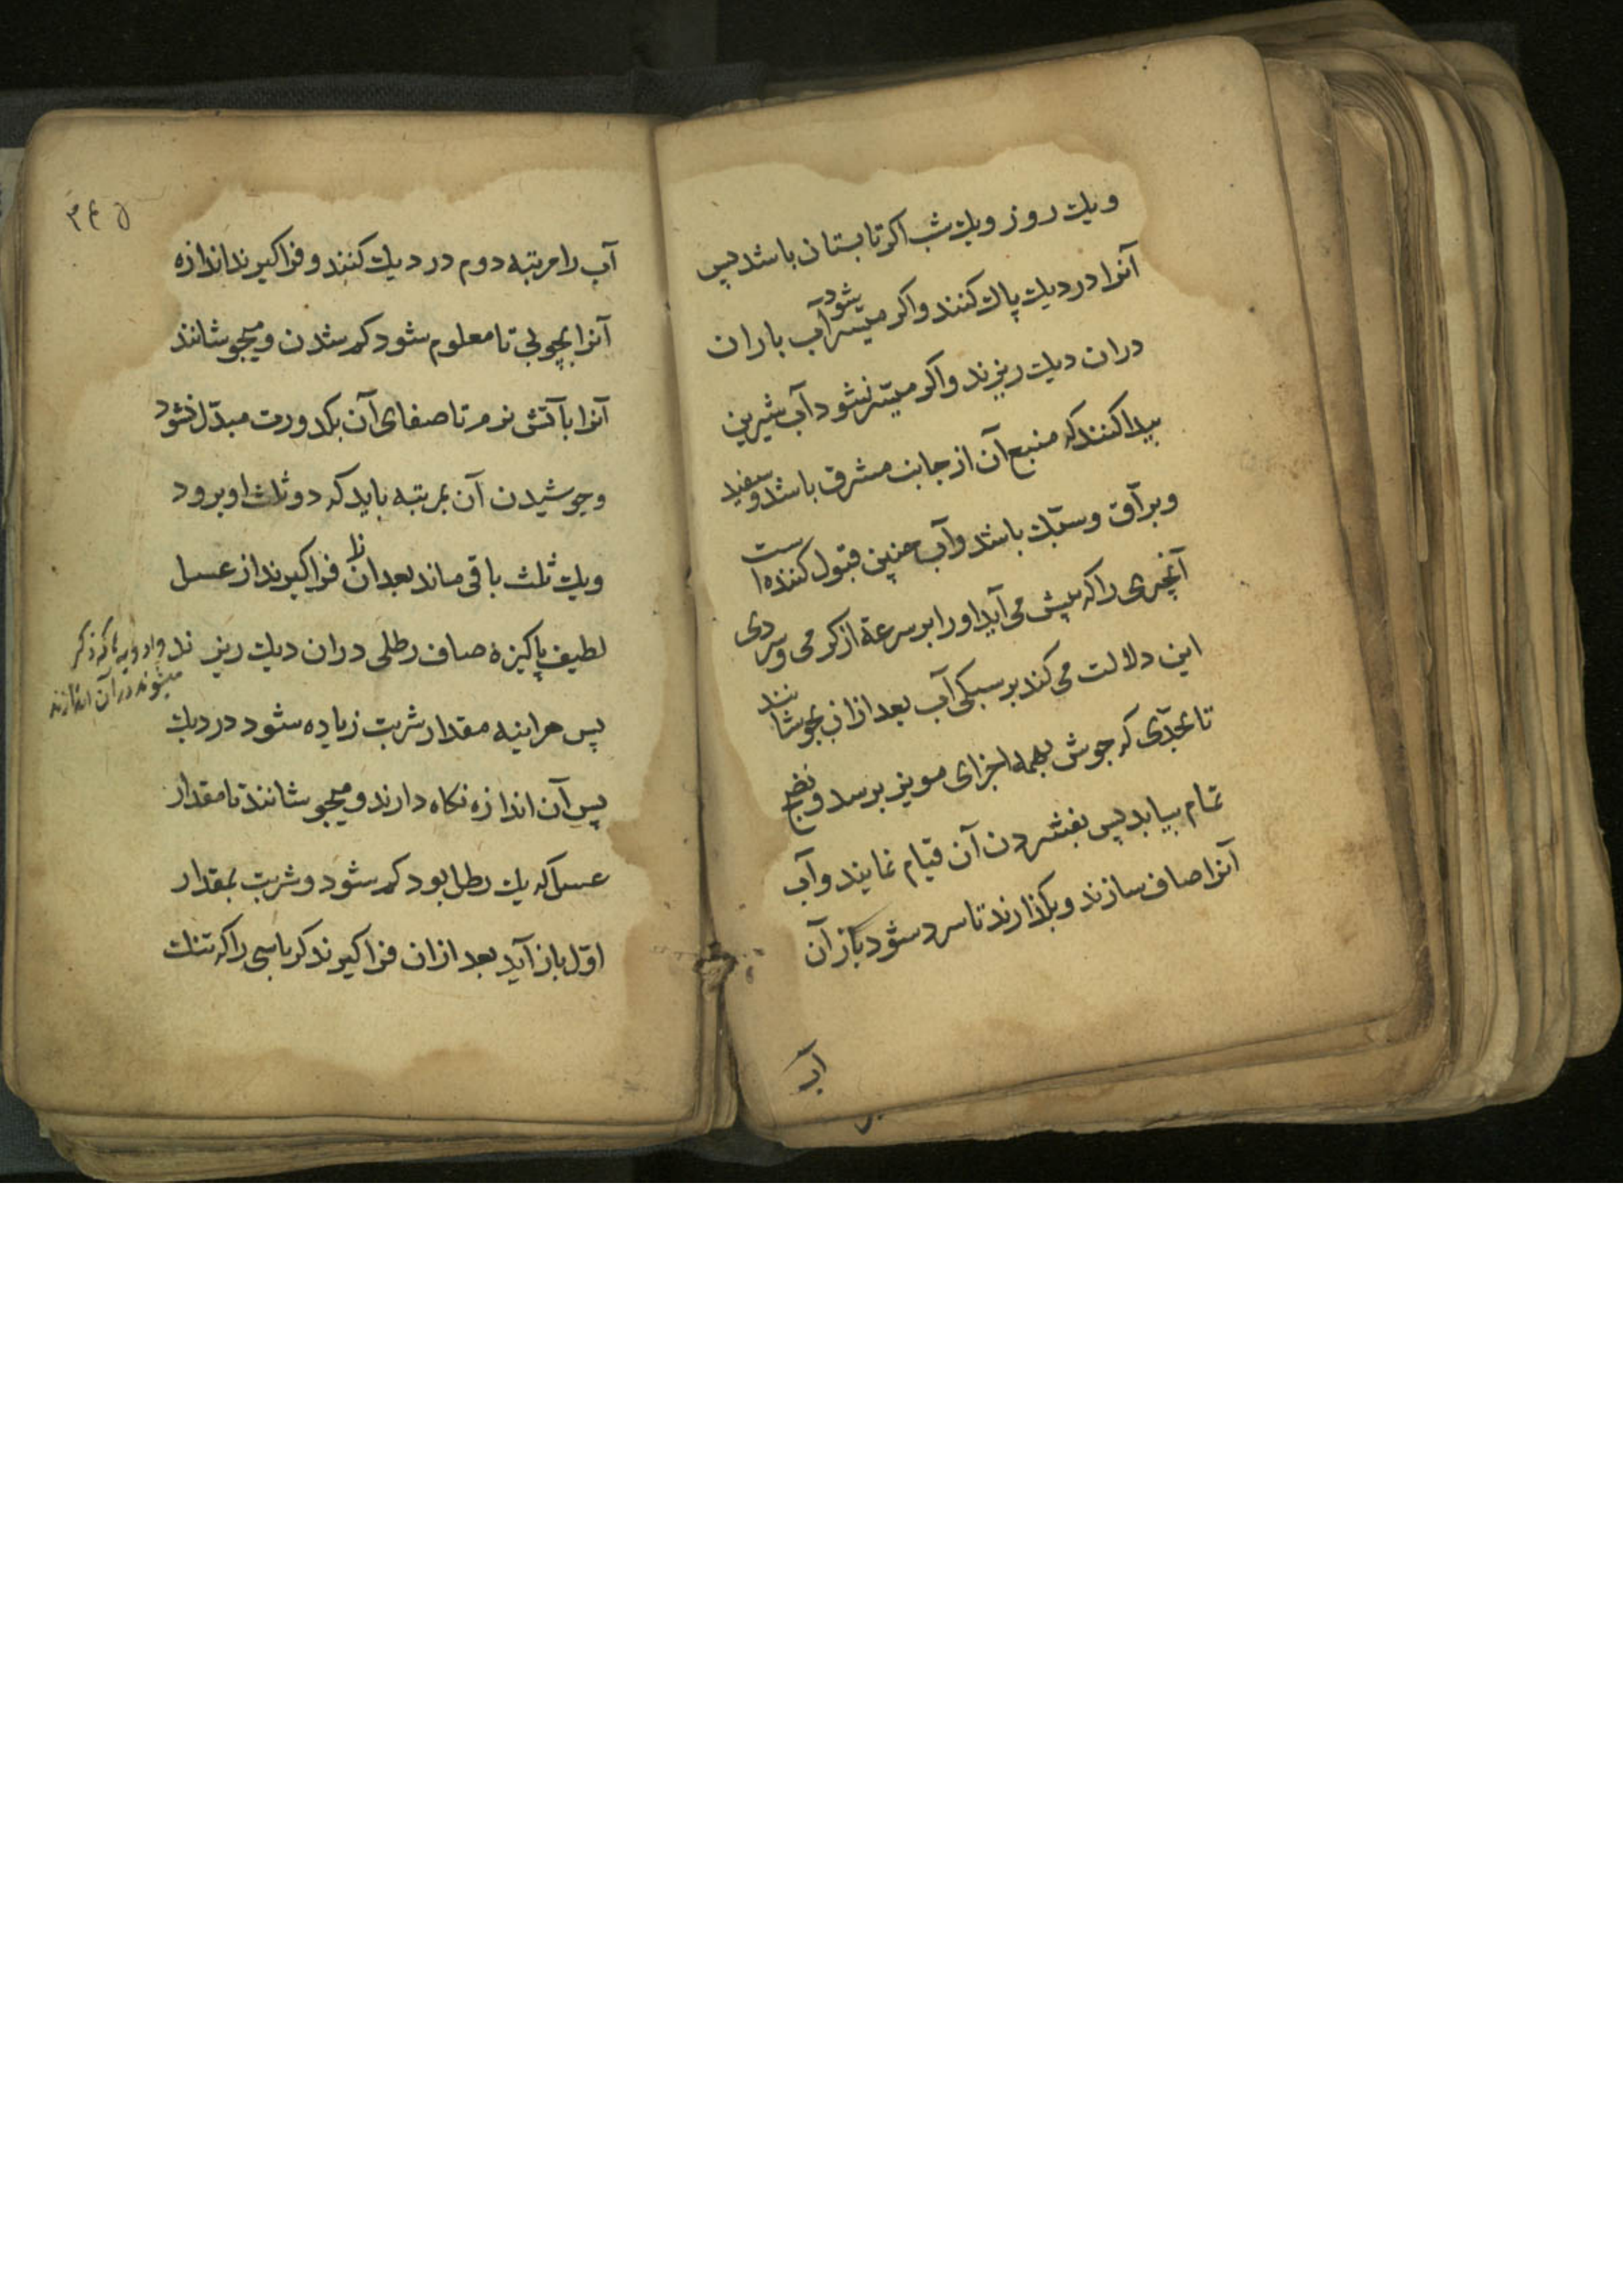 ویك روز ویك شب اكر تابستان باشد پس
آنرا در دیك پاك كنند واكر میسر شود آب باران
دران دیك ریزند واكر میسر نشود آب شیرین
پیدا كنند كه منبع آن از جانب مشرق باشد و سفید
وبرآق وسبك باشد وآب چنین قبول كننده است
آنچیزی را كه پیش می آید اورا بر سرعة از كرمی و سردی
این دلالت می كند بر سبكی آب بعد ازان بجوشانند
تا بحدّی كه جوش بهمه اجزای مویز برسد و نضج
تمام بیابد پس بفشردن آن قیام نمایند وآب
آنرا صاف سازند وبكذارند تا سرد شود باز آن
آب
۳۴۵
آب را مرتبه دوم در دیك كنند و فرا كیرند اندازه
آنرا بچوبی تا معلوم شود كم شدن و میجوشانند
آنرا بآتش نرم تا صفای آن بكدورت مبدّل نشود
وجوشیدن آن بمرتبه باید كه دو ثلث او برود
ویك ثلث باقی ماند بعد ازان فرا كیرند از عسل
لطیف پاكیزه صاف رطلی دران دیك ریزند
وادویه كه ذكر
میشوند در آن اندازند
پس هراینه مقدار شربت زیاده شود در دیك
پس آن اندازه نكاه دارند و میجوشانند تا مقدار
عسل كه یك رطل بود كم شود و شربت بمقدار
اوّل باز آید بعد ازان فرا كیرند كرباسی را كه تنك